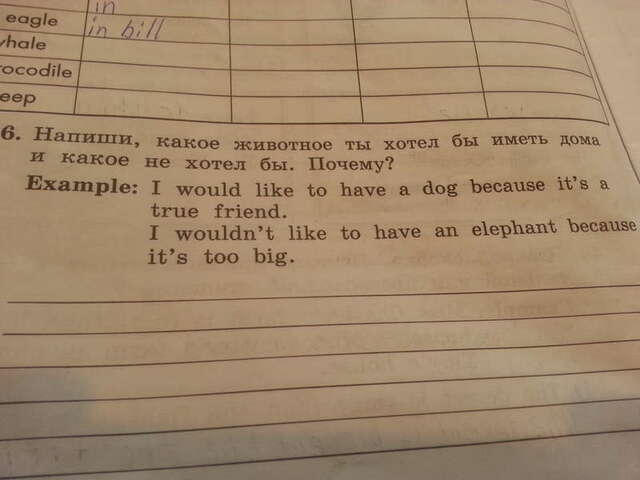 in
eagle in bill
whale
rocodile
eep
6. Напиши, какое животное ты хотел бы иметь дома
и какое не хотел бы. Почему?
Example: I would like to have a dog because it's a
true friend.
I wouldn't like to have an elephant because
it's too big.